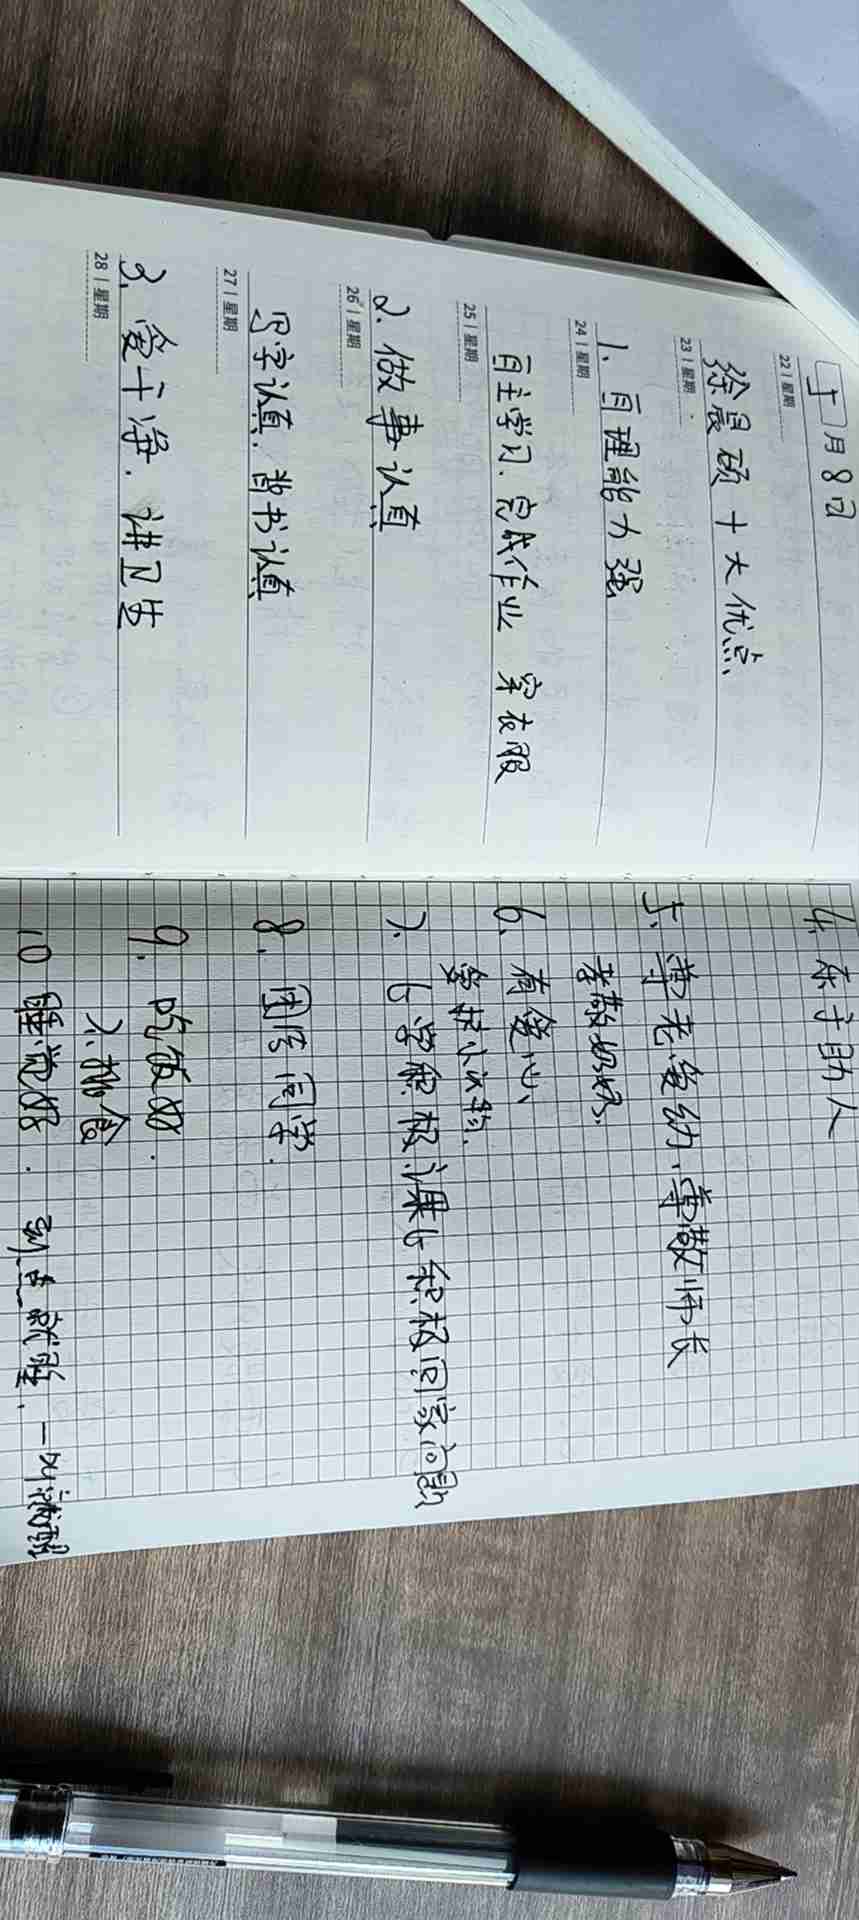 5月8日
22 | 星期
徐晨硕十大优点
23 | 星期
1、自理能力强
24 | 星期
自主学习、完成作业 穿衣服
25 | 星期
2、做事认真
26 | 星期
写字认真、背书认真
27 | 星期
3、爱干净、讲卫生
28 | 星期
4、乐于助人
5、尊老爱幼、尊敬师长
孝敬奶奶、
6、有爱心、
爱护小动物.
7、上学积极、课上积极回答问题
8、团结同学.
9、吃饭好.
不挑食
10 睡觉好. 到点就睡.